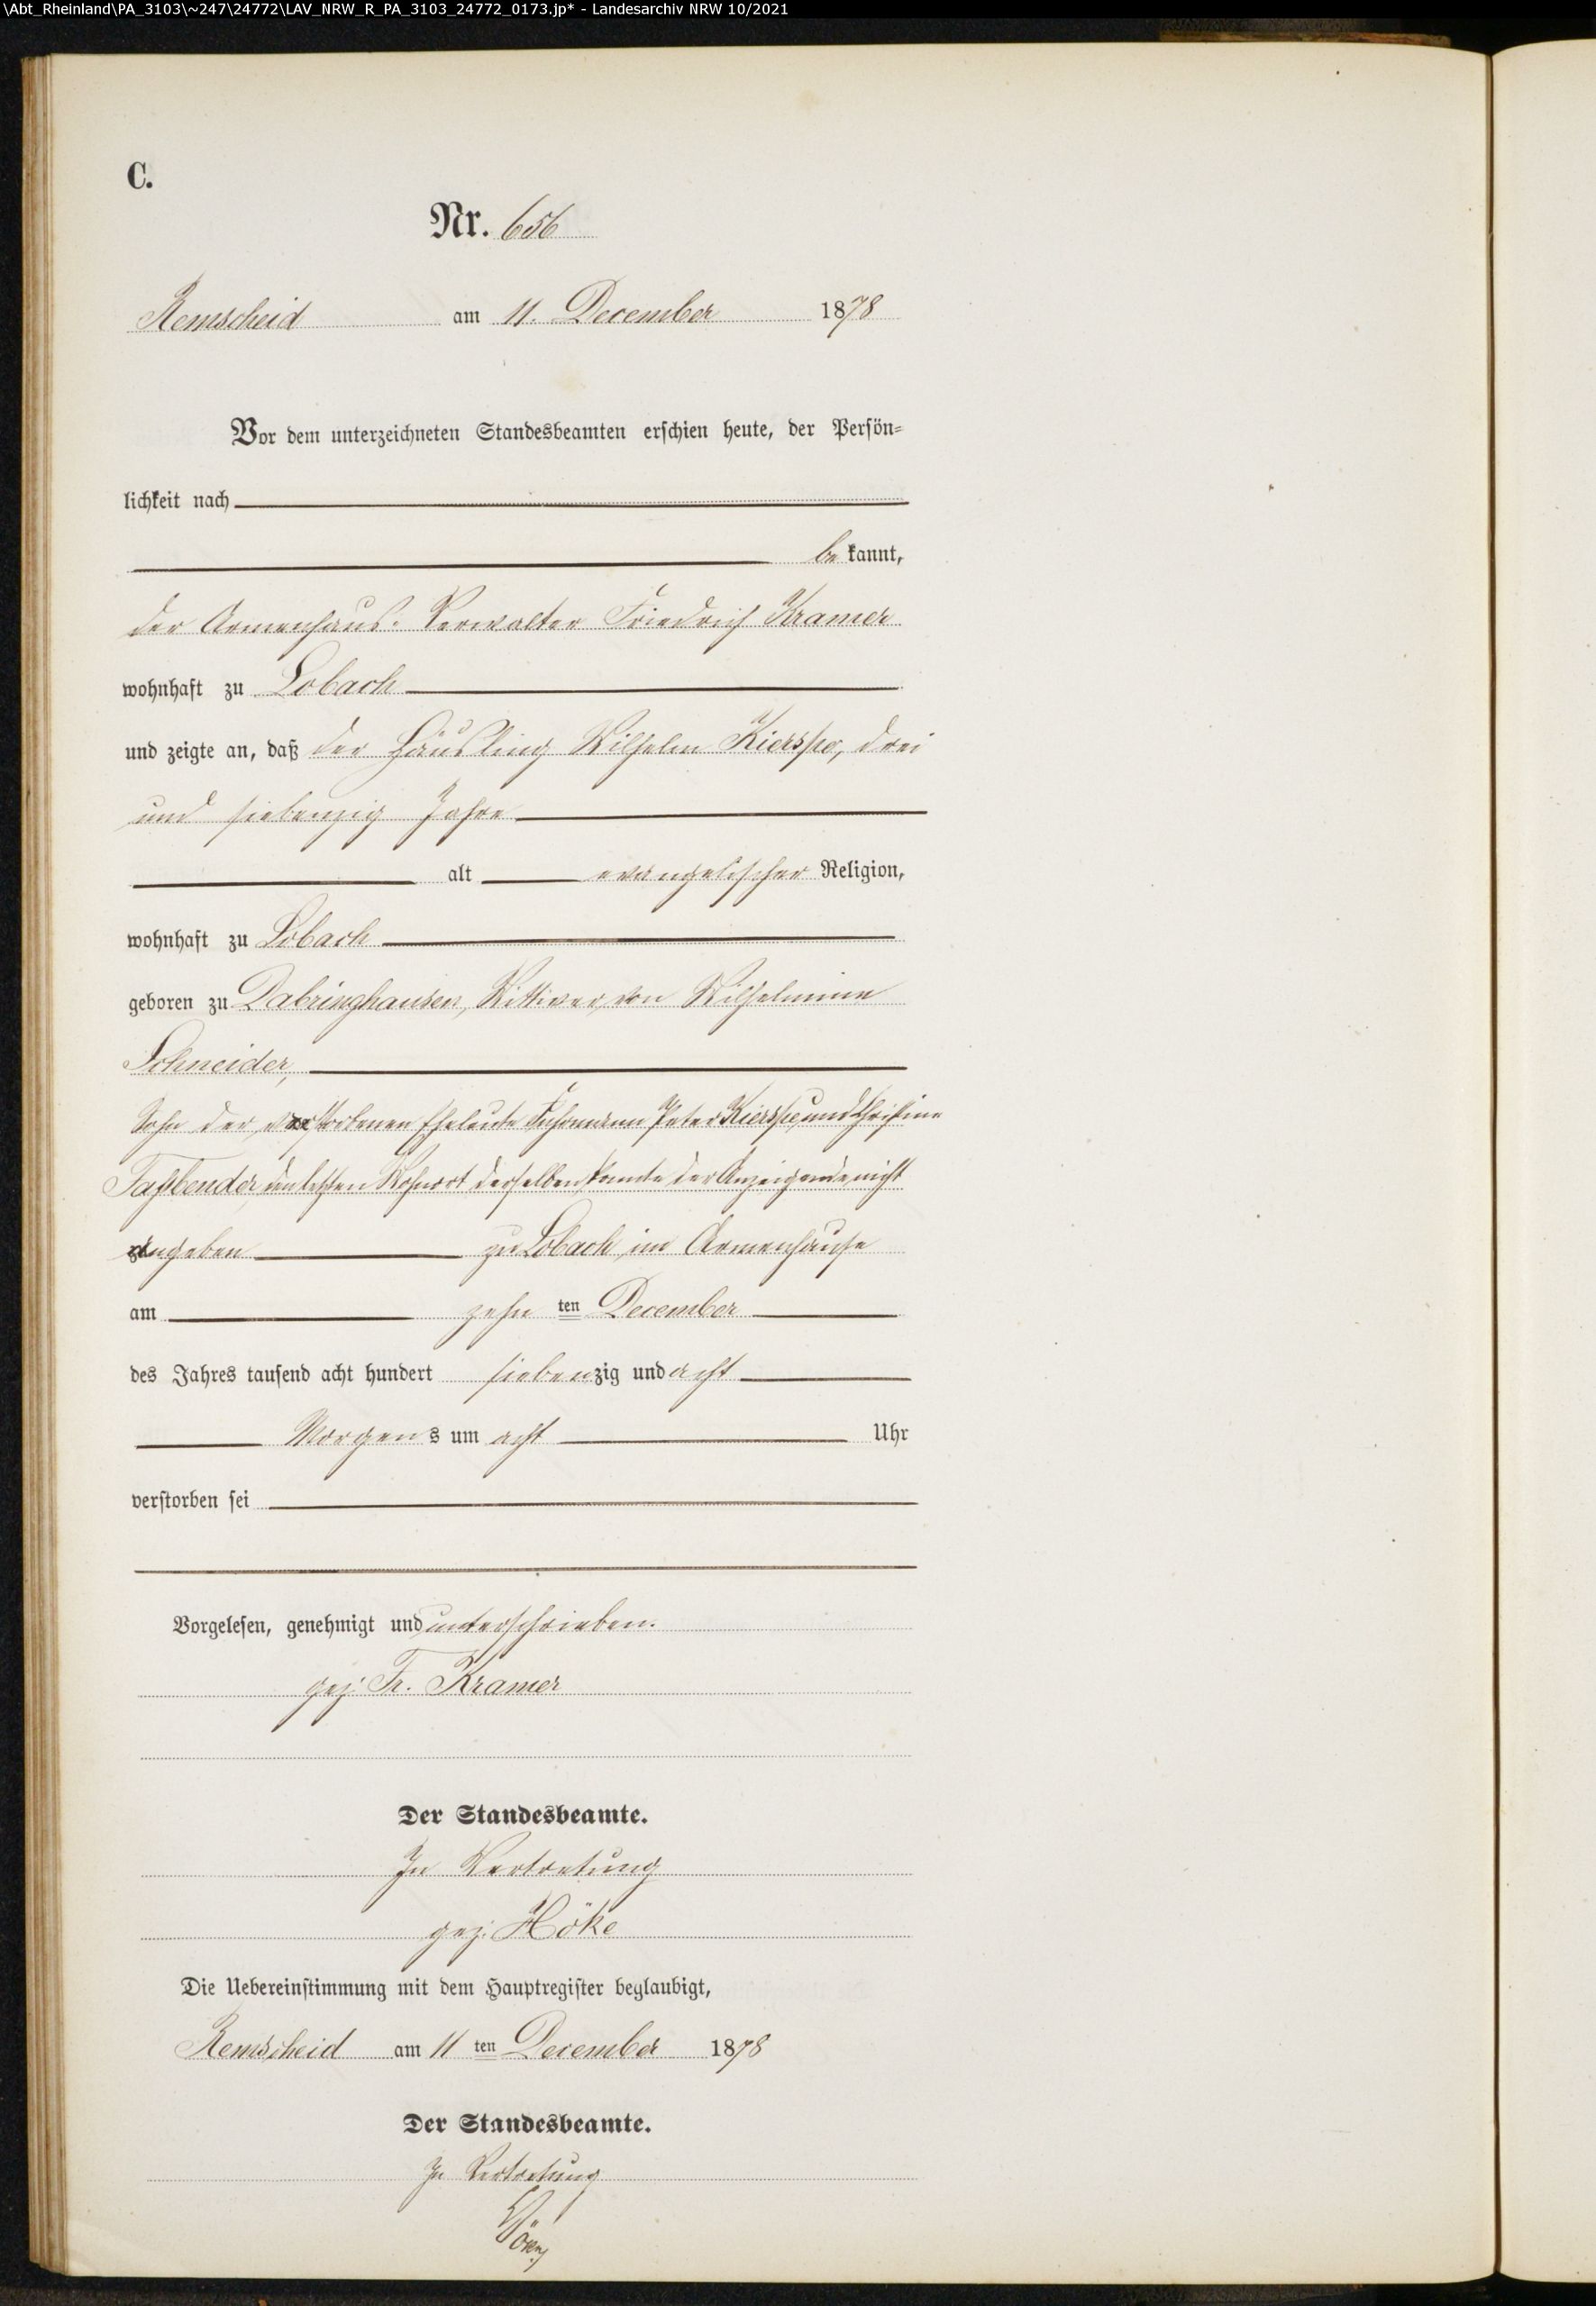 \Abt_Rheinland\PA_3103\~247\24772\LAV_NRW_R_PA_3103_24772_0173.jp* - Landesarchiv NRW 10/2021
C.
Nr. 656
Remscheid am 11. December 1878
Vor dem unterzeichneten Standesbeamten erschien heute, der Persön=
lichkeit nach
be kannt,
der Armenhaus-Verwalter Friedrich Kramer
wohnhaft zu Lobach
und zeigte an, daß der Häusling Wilhelm Kierspe, drei
und siebenzig Jahre
alt evangelischer Religion,
wohnhaft zu Lobach
geboren zu Dabringhausen, Wittwer von Wilhelmine
Schneider,
Sohn der verstorbenen Eheleute Fuhrmann Peter Kierspe und Christine
Faßbender, den letzten Wohnort derselben konnte der Anzeigende nicht
angeben zu Lobach im Armenhause
am zehn ten December
des Jahres tausend acht hundert siebenzig und acht
Morgens um acht Uhr
verstorben sei
Vorgelesen, genehmigt und unterschrieben.
gez. Fr. Kramer
Der Standesbeamte.
In Vertretung
gez. Höke
Die Uebereinstimmung mit dem Hauptregister beglaubigt,
Remscheid am 11 ten December 1878
Der Standesbeamte.
In Vertretung